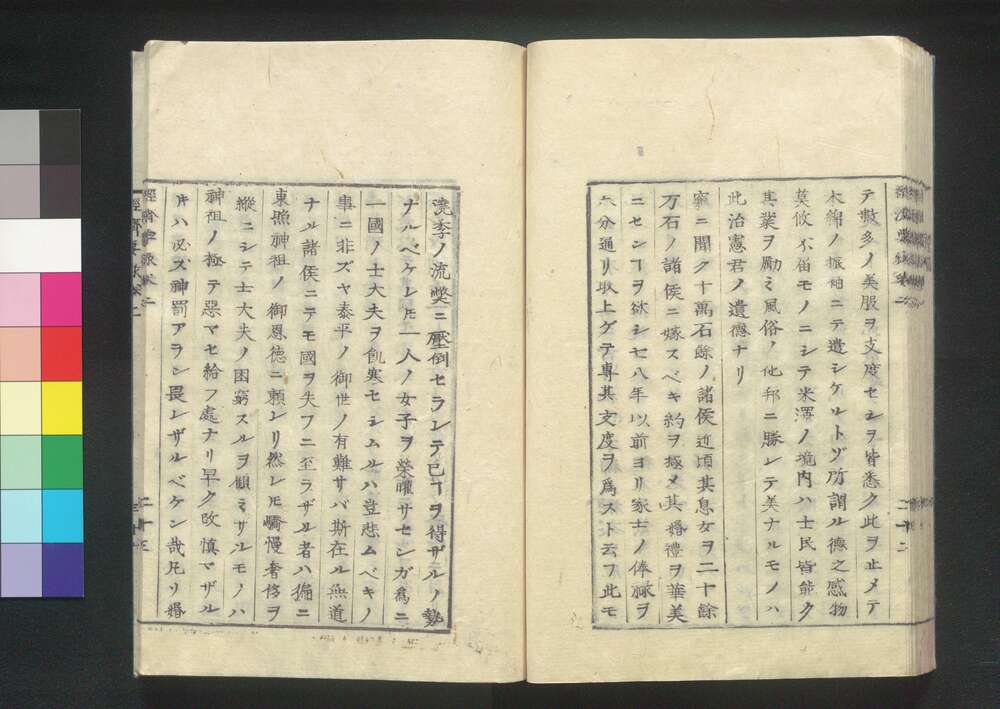 テ數多ノ美服ヲ支度セシヲ皆悉ク此ヲ止メテ
木綿ノ振袖ニテ遣シケルトゾ所謂ル德之感物
莫攸不届モノニシテ米澤ノ境内ハ士民皆能ク
其業ヲ勵ミ風俗ノ他邦ニ勝レテ美ナルモノハ
此治憲君ノ遺德ナリ
竊ニ聞ク十萬石餘ノ諸侯近頃其息女ヲ二十餘
万石ノ諸侯ニ嫁スベキ約ヲ極メ其婚禮ヲ華美
ニセンヿヲ欲シ七八年以前ヨリ家士ノ俸祿ヲ
六分通リ取上グテ專其支度ヲ爲スト云フ此モ
澆季ノ流弊ニ壓倒セラレテ已ヿヲ得ザルノ勢
ナルベケレ𪜈一人ノ女子ヲ榮曜サセンガ爲ニ
一國ノ士大夫ヲ飢寒セシムルハ豈悲ムベキノ
事ニ非ズヤ泰平ノ御世ノ有難サバ斯在ル無道
ナル諸侯ニテモ國ヲ失フニ至ラザル者ハ獨ニ
東照神祖ノ御恩德ニ頼レリ然レ𪜈驕慢奢侈ヲ
縱ニシテ士大夫ノ困窮スルヲ顧ミザルモノハ
神祖ノ極テ惡マセ給フ處ナリ早ク改慎マザル
𪜈ハ必ズ神罰アラン畏レザルベケン哉凡リ婚